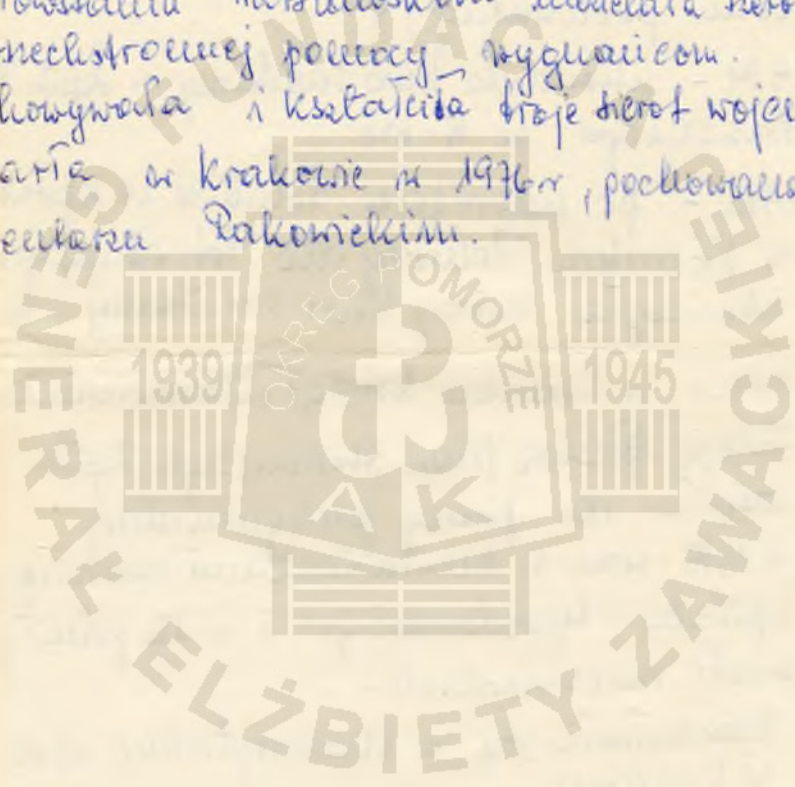 powstaniu warszawskim udzielała szero
szechstronnej pomocy wygnańcom.
howywała i kształciła troje sierot wojen
arła w Krakowie w 1976 r, pochowana
entarzu Rakowickim.
FUNDACJA GENERAŁ ELŻBIETY ZAWACKIEJ
OKRĘG POMORZE
1939 1945
AK